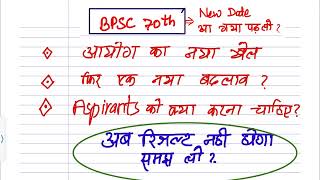 BPSC 70th
New Date
या क्या पहली ?
आयोग का नया खेल
फिर एक नया बदलाव ?
Aspirants को क्या करना चाहिए ?
अब रिजल्ट नही होगा
समझ लो ?